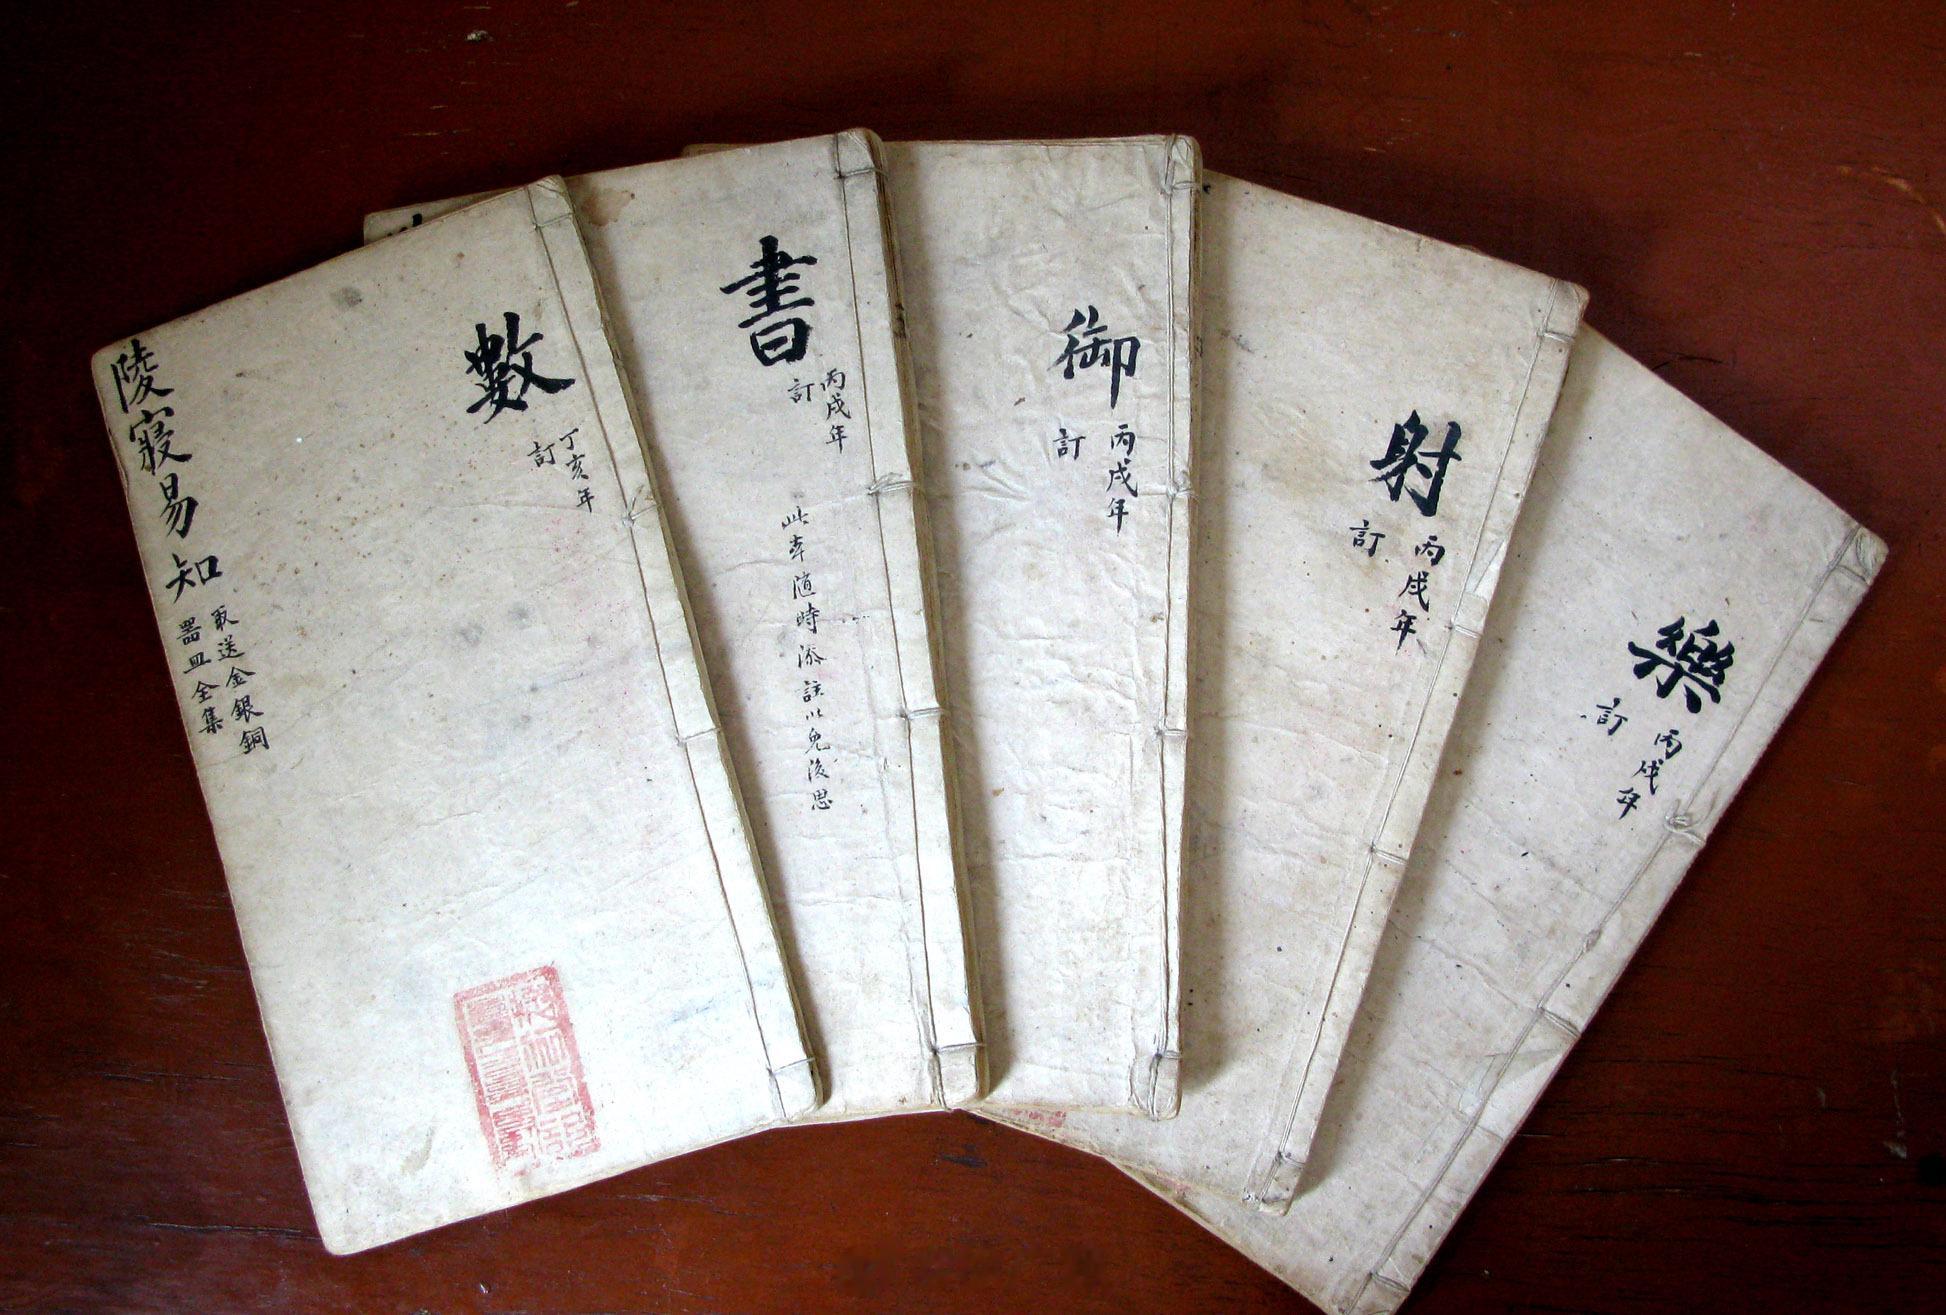 陵寢易知
取送金銀銅
器皿全集
數
丁亥年
訂
書
丙戌年
訂
此本随時添註以免後思
御
丙戌年
訂
射
丙戌年
訂
樂
丙戌年
訂